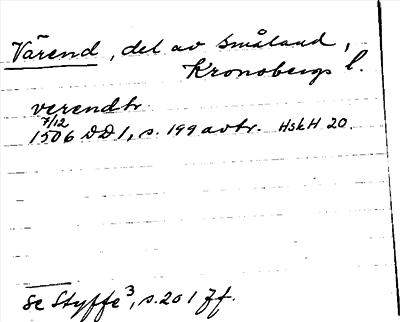 Värend, del av Småland,
Kronobergs l.
verendtr
7/12
1506 DD 1, s. 199 avtr. HskH 20.
Se Styffe³, s. 201 ff.